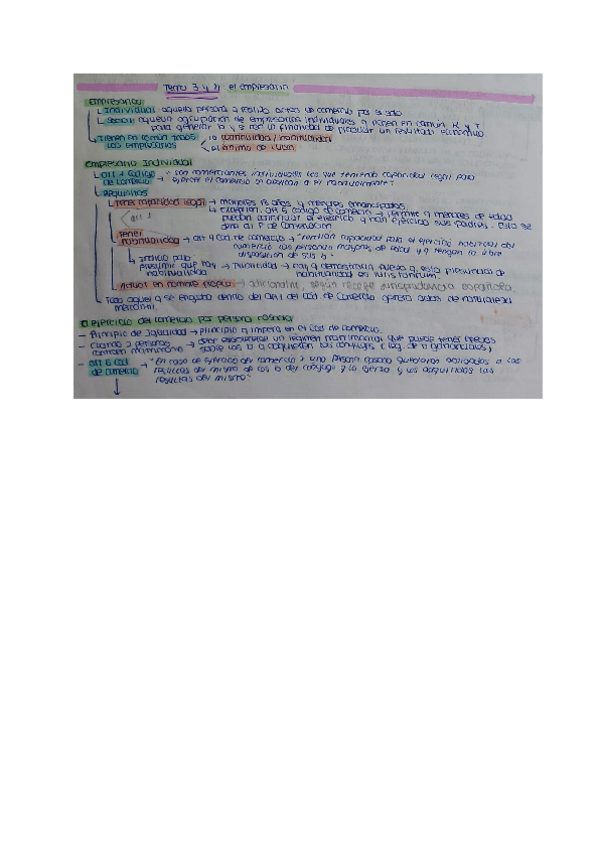 Tema 3 y 4 el empresario
Empresarios
Individual aquella persona q realiza actos de comercio por si solo
Social: aquella agrupación de empresarios individuales q ponen en común K y T
para generar b y s con la finalidad de producir un resultado económico
Tienen en común todos los empresarios
continuidad / habitualidad
el ánimo de lucro
Empresario Individual
art 1 Código de Comercio → "son comerciantes individuales los que teniendo capacidad legal para
ejercer el comercio se dedican a él habitualmente"
Requisitos
Tener capacidad legal → mayores 18 años y menores emancipados
excepción. art 5 Código de Comercio → permite q menores de edad
puedan continuar el ejercicio q han ejercido sus padres.
Tener habitualidad → art 4 Cód. de comercio → "tendrán capacidad para el ejercicio habitual del
comercio las personas mayores de edad y q tengan la libre
disposición de sus b"
presumir que hay habitualidad → hay q demostrarla puesto q esta presunción de
habitualidad es iuris tantum.
Actuar en nombre propio → adicional, según recoge jurisprudencia española.
Todo aquel q se engloba dentro del art 1 del Cód. de Comercio genera actos de naturaleza
mercantil.
El ejercicio del comercio por persona casada
- Principio de igualdad → principio q impera en el Cód de comercio.
- Cuando 2 personas contraen matrimonio → deben establecer un régimen matrimonial que puede tener efectos
sobre los b q adquieren los cónyuges (reg. de b gananciales)
- art 6 Cód de comercio → "En caso de ejercicio del comercio x una persona casada quedarán obligados a las
resultas del mismo de los b del cónyuge q lo ejerza y los adquiridos las
resultas del mismo"